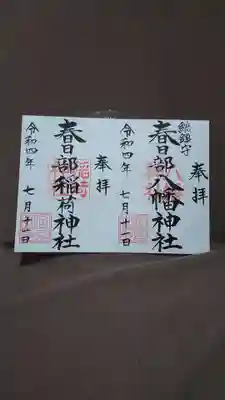 総鎮守
奉拝
春日部八幡神社
令和四年 七月十一日
奉拝
春日部稲荷神社
令和四年 七月十一日